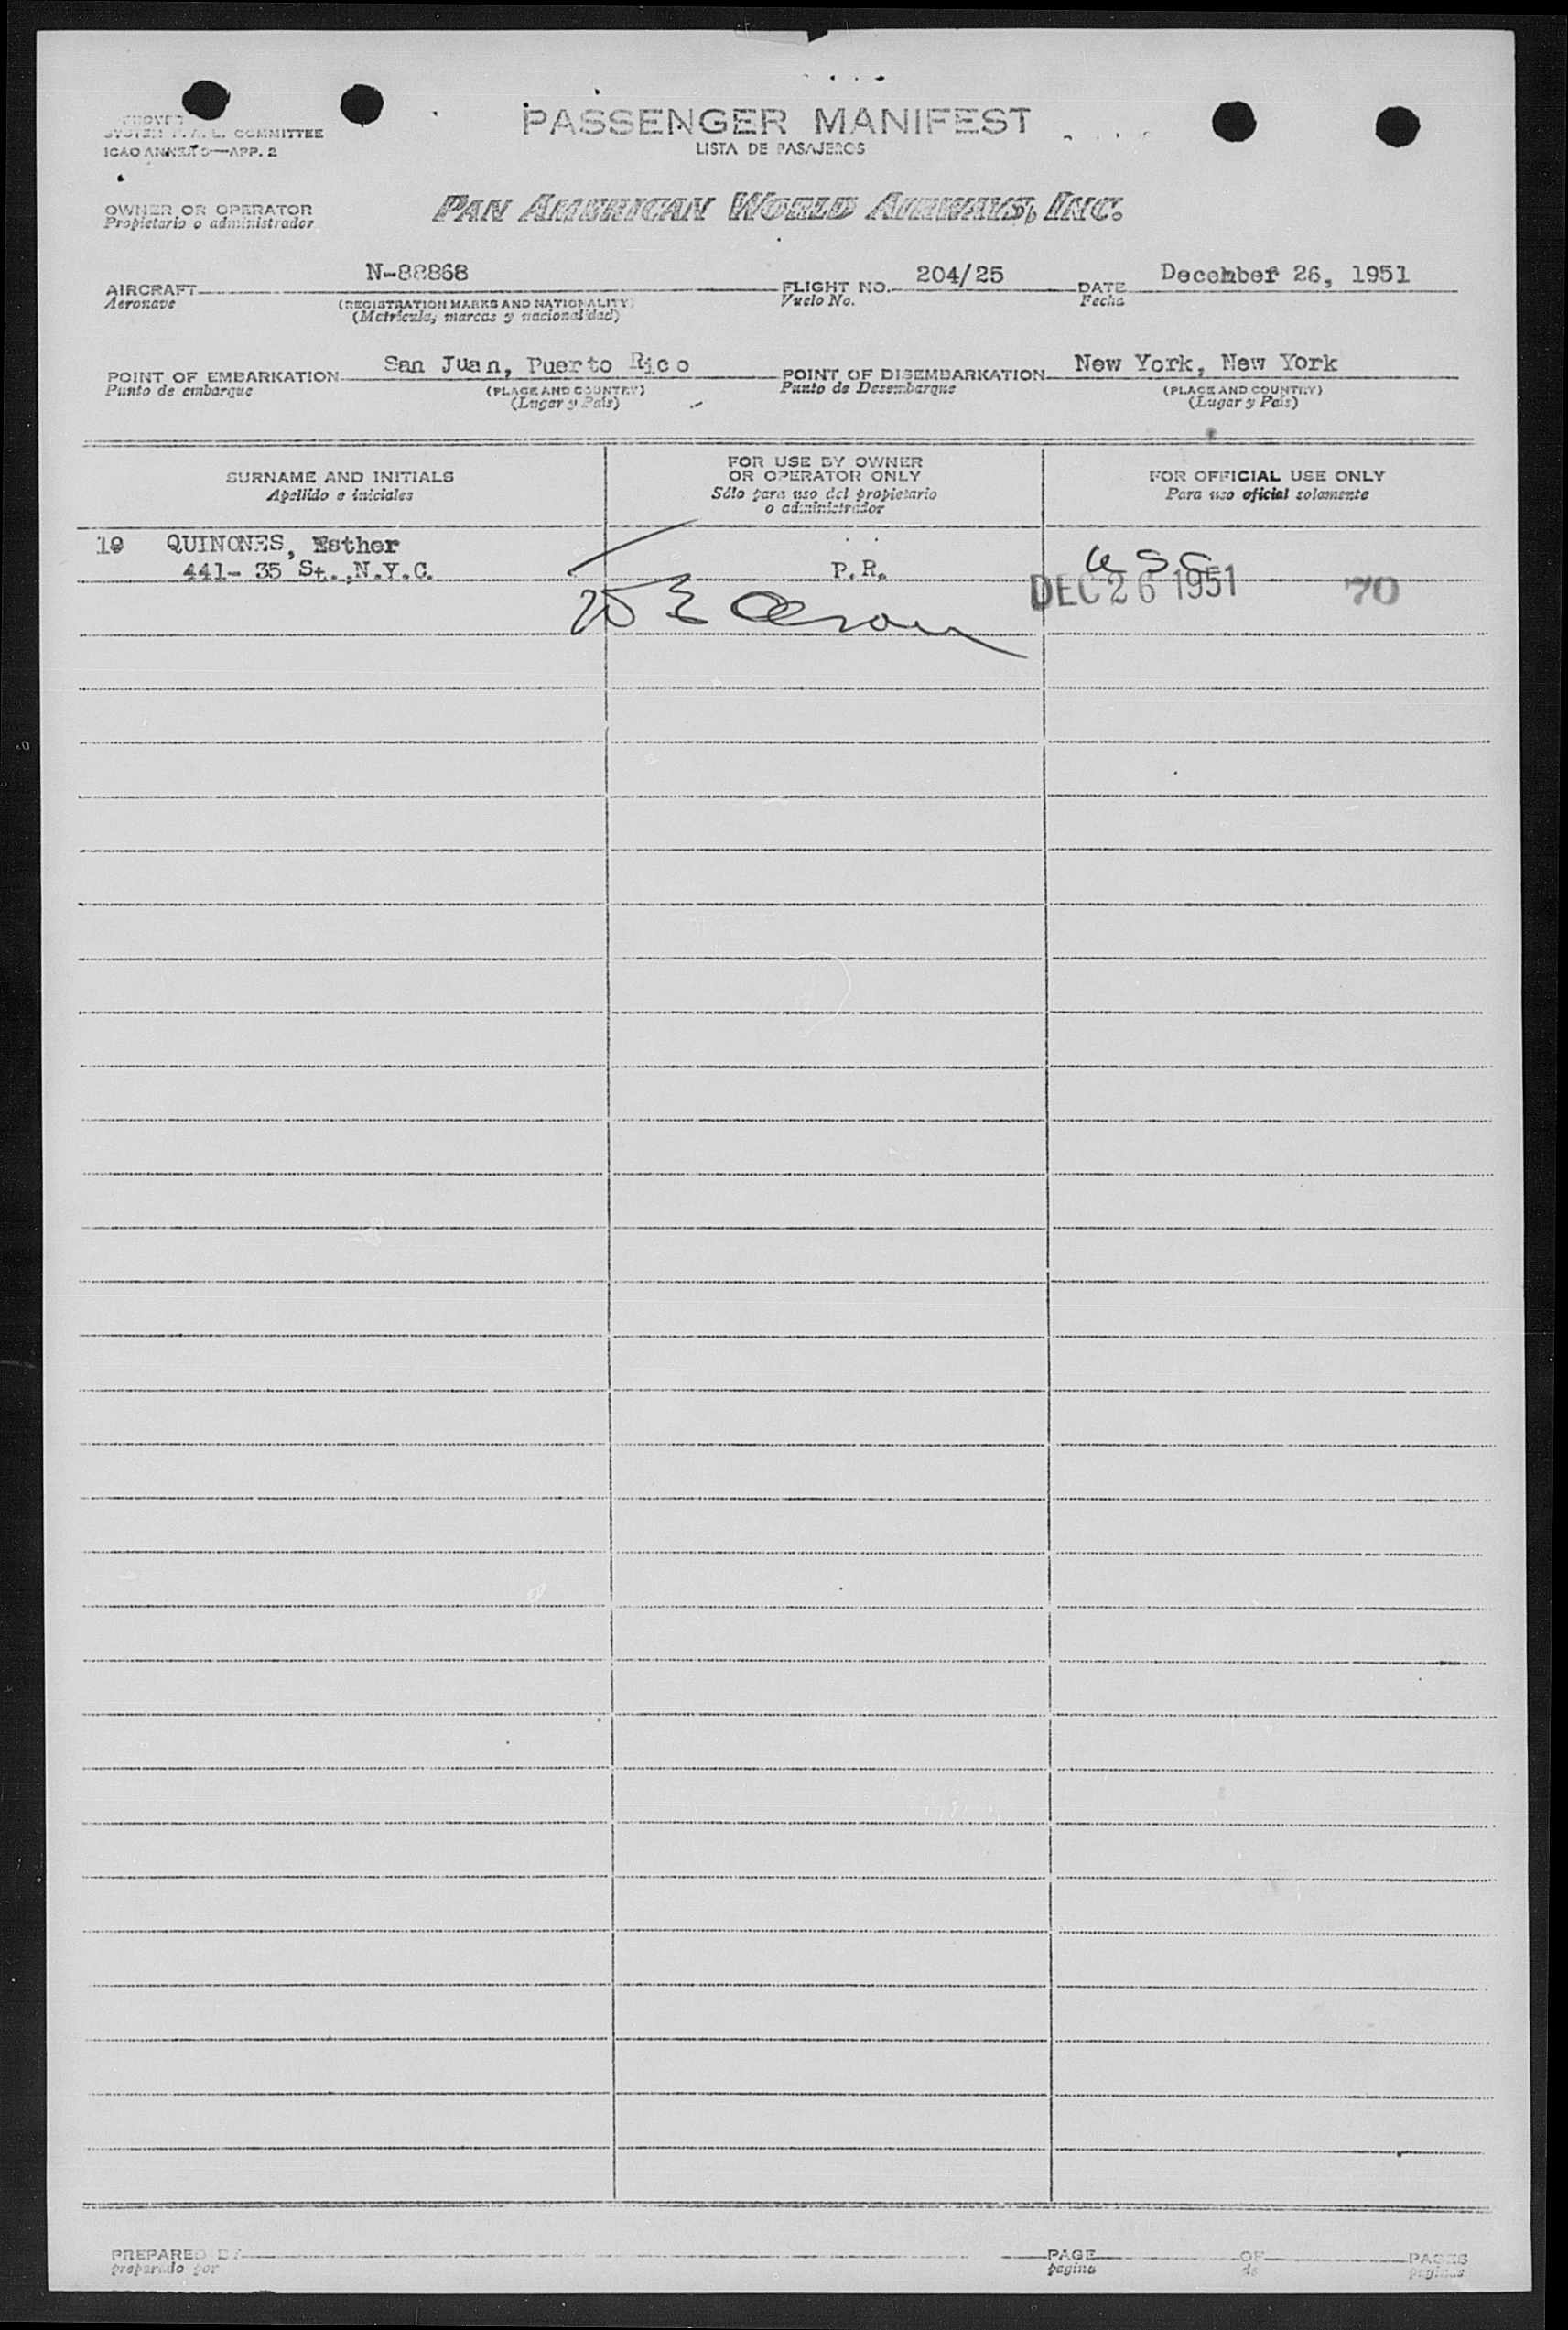 PASSENGER MANIFEST
LISTA DE PASAJEROS
SYSTEM F. A. L. COMMITTEE
ICAO ANNEX 9—APP. 2
OWNER OR OPERATOR
Propietario o administrador
PAN AMERICAN WORLD AIRWAYS, INC.
AIRCRAFT N-88868 FLIGHT NO. 204/25 DATE December 26, 1951
Aeronave (REGISTRATION MARKS AND NATIONALITY) Vuelo No. Fecha
(Matrícula, marcas y nacionalidad)
POINT OF EMBARKATION San Juan, Puerto Rico POINT OF DISEMBARKATION New York, New York
Punto de embarque (PLACE AND COUNTRY) Punto de Desembarque (PLACE AND COUNTRY)
(Lugar y País) (Lugar y País)
SURNAME AND INITIALS
Apellido e iniciales
FOR USE BY OWNER
OR OPERATOR ONLY
Sólo para uso del propietario
o administrador
FOR OFFICIAL USE ONLY
Para uso oficial solamente
QUINONES, Esther
441- 35 St., N.Y.C. P.R.
DEC 26 1951 70
PREPARED BY PAGE OF PAGES
preparado por pagina de paginas